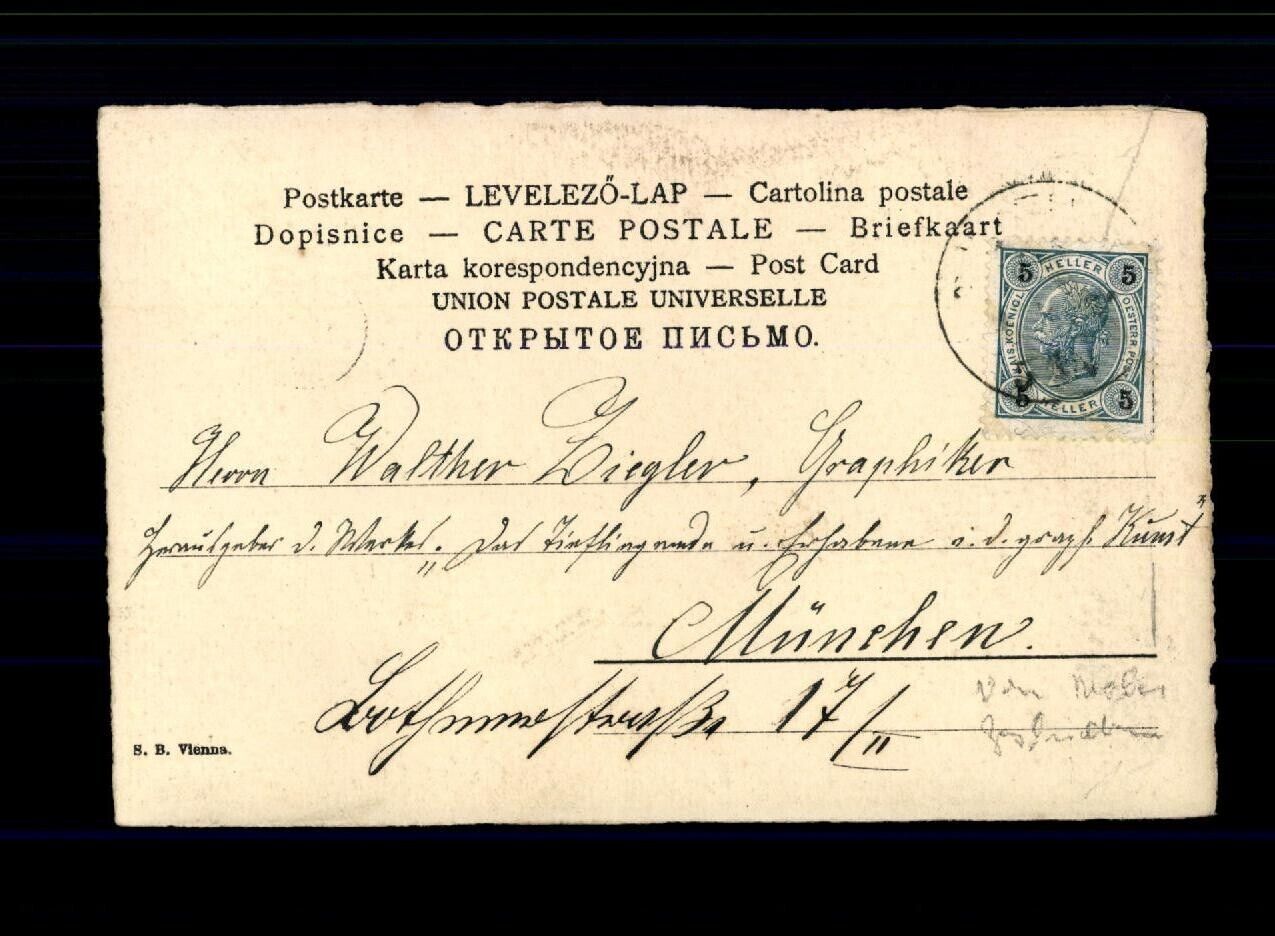 Postkarte — LEVELEZŐ-LAP — Cartolina postale
Dopisnice — CARTE POSTALE — Briefkaart
Karta korespondencyjna — Post Card
UNION POSTALE UNIVERSELLE
ОТКРЫТОЕ ПИСЬМО.
5 HELLER 5
KAIS. KOENIGL. OESTERR. POST
5 HELLER 5
Herrn Walther Ziegler, Graphiker
Herausgeber d. Werkes „Das Tiefliegende u. Erhabene i. d. graph. Kunst"
München.
Bothmerstraße 17/II
von
geschrieben
S. B. Vienna.